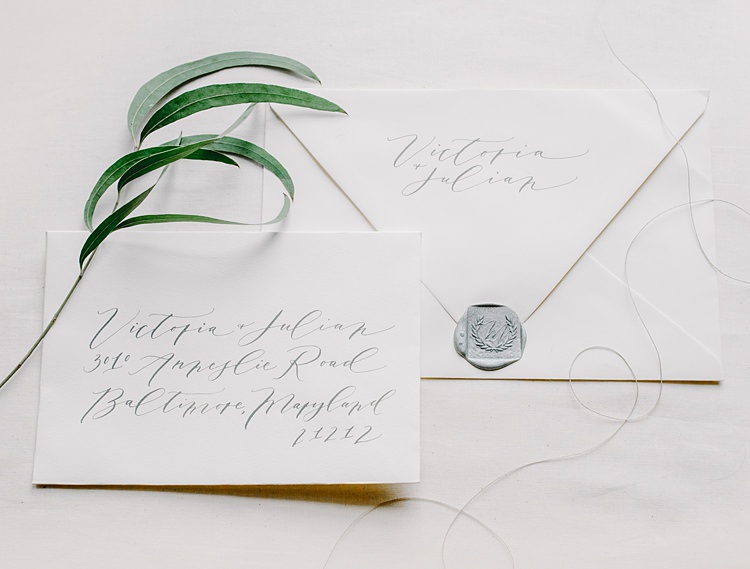 Victoria
+ Julian
Victoria + Julian
3010 Anneslie Road
Baltimore, Maryland
21212